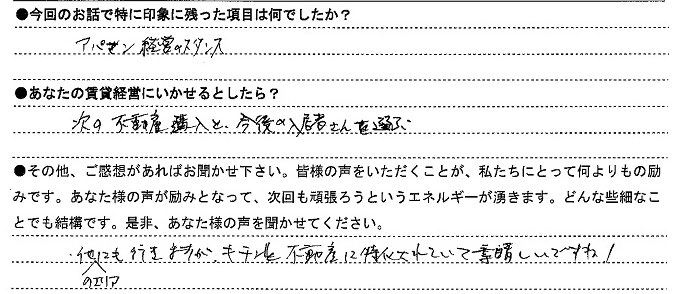 ●今回のお話で特に印象に残った項目は何でしたか?
アパマン経営のスタンス
●あなたの賃貸経営にいかせるとしたら?
次の不動産購入と、今後の入居者さんを選ぶ
●その他、ご感想があればお聞かせ下さい。皆様の声をいただくことが、私たちにとって何よりもの励
みです。あなた様の声が励みとなって、次回も頑張ろうというエネルギーが湧きます。どんな些細なこ
とでも結構です。是非、あなた様の声を聞かせてください。
・他にも行きますが、キチンと不動産に特化されていて素晴しいですね!
のエリア